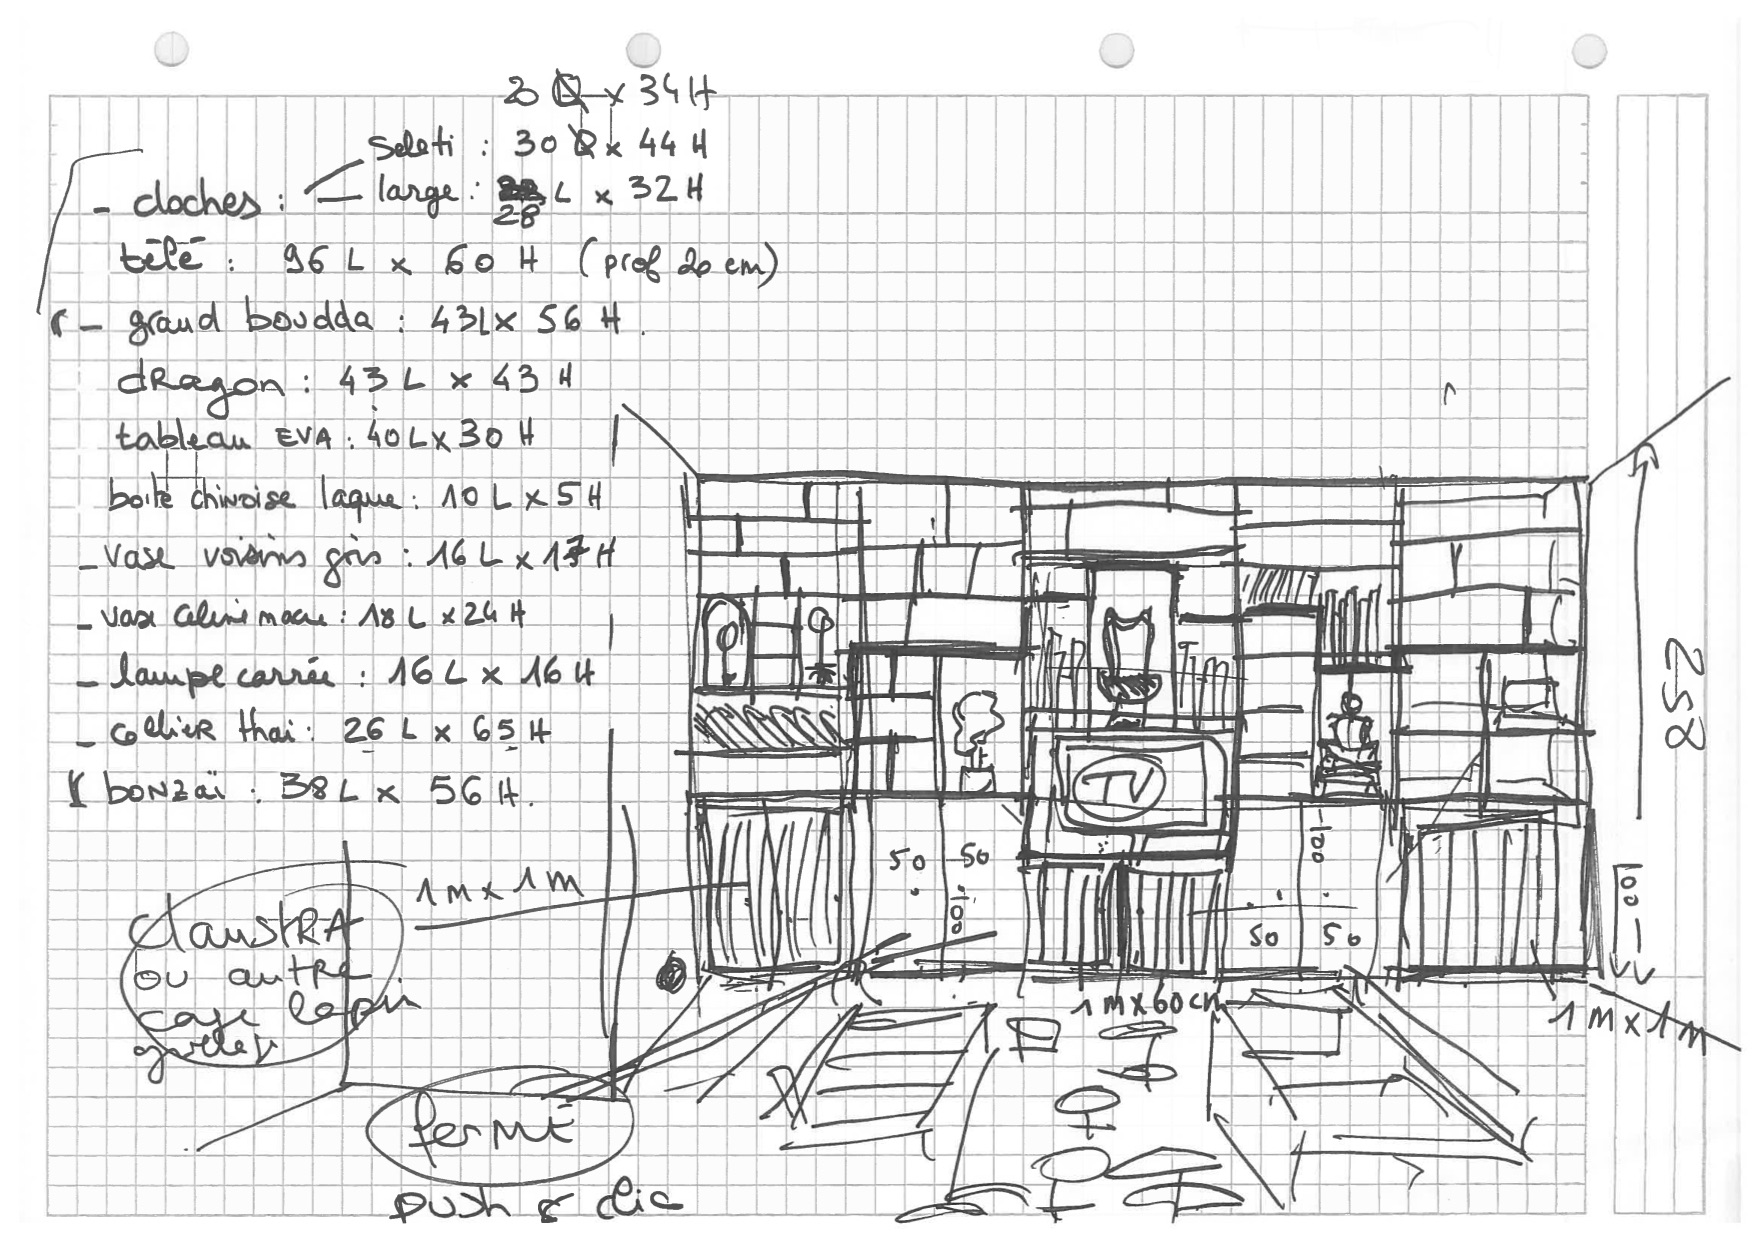 20 Ø x 34 H
Seleti : 30 Ø x 44 H
- cloches : large : 28 L x 32 H
télé : 96 L x 60 H (prof 20 cm)
- grand boudda : 43L x 56 H.
dragon : 43 L x 43 H
tableau EVA : 40 L x 30 H
boite chinoise laque : 10 L x 5 H
- vase voisins gris : 16 L x 17 H
- vase celine : 18 L x 24 H
- lampe carrée : 16 L x 16 H
- collier thai : 26 L x 65 H
bonzaï : 38 L x 56 H.
258
TV
50 50
100
100
50 50
100
1m x 1m
claustRA
ou autre
case lapin
1m x 60cm
1m x 1m
fermé
push & clic